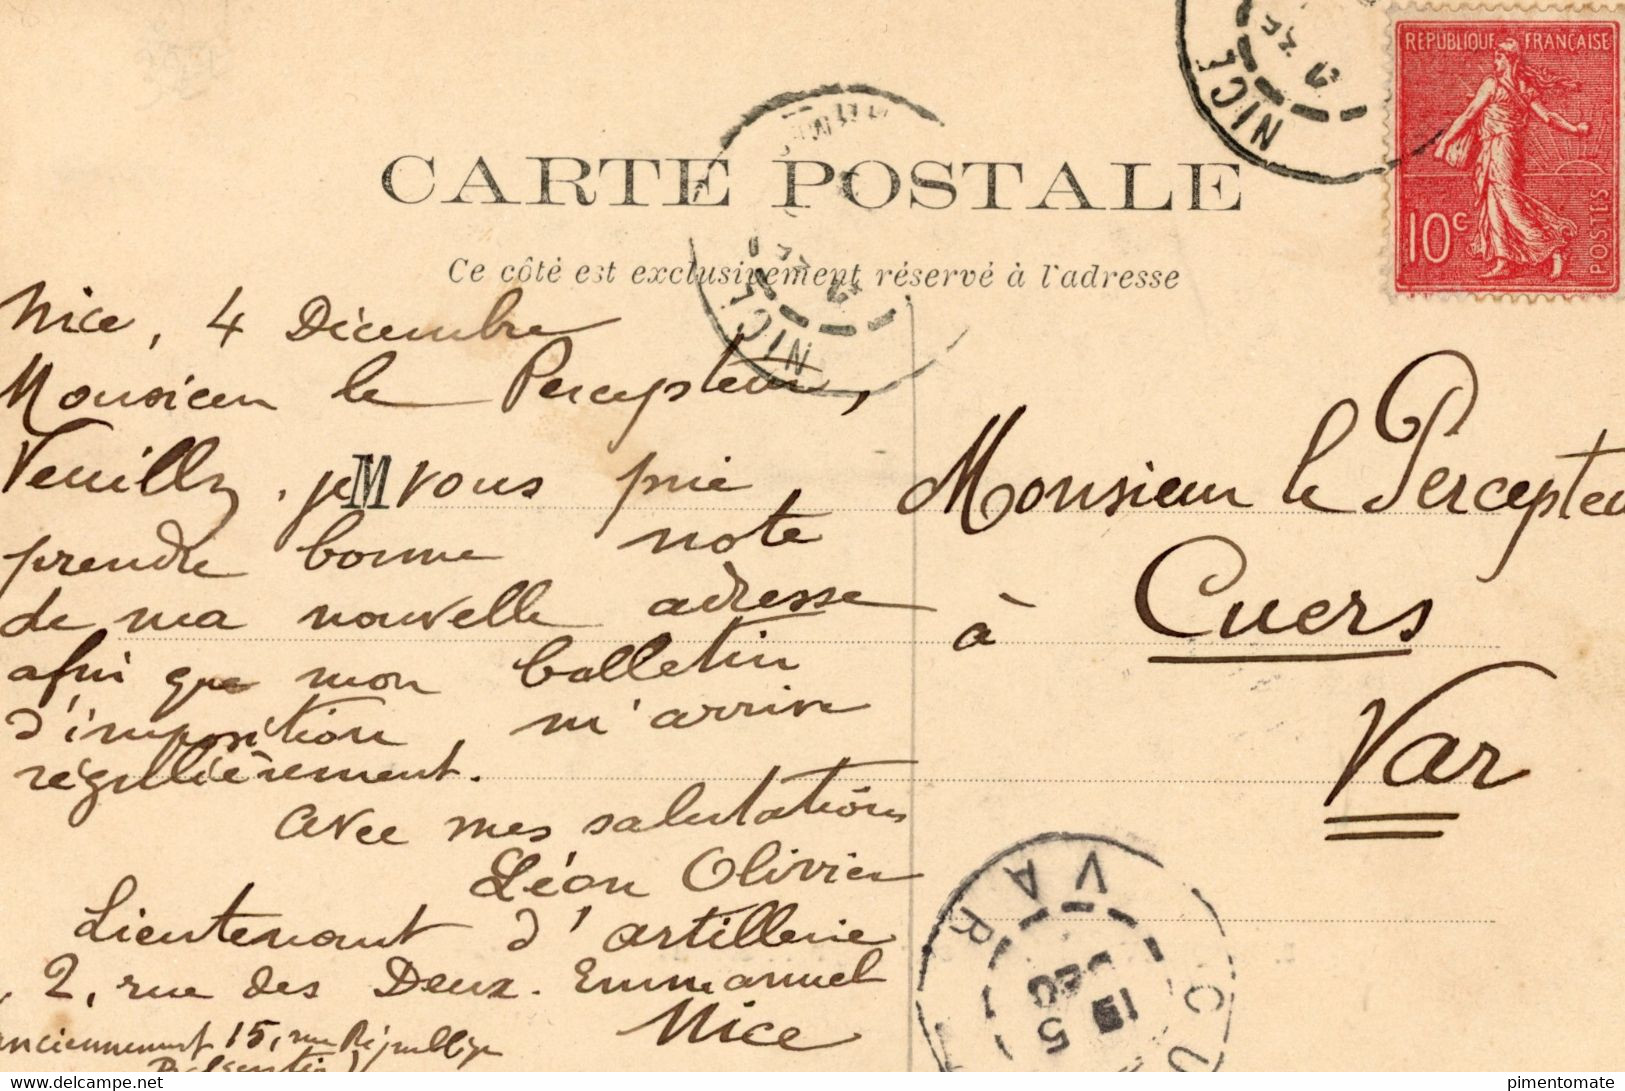 RÉPUBLIQUE FRANÇAISE
10c
POSTES
NICE
CARTE POSTALE
Ce côté est exclusivement réservé à l'adresse
NICE
Nice, 4 Décembre
Monsieur le Percepteur,
Veuillez, je M vous prie,
prendre bonne note
de ma nouvelle adresse
afin que mon bulletin
d'imposition, m'arrive
régulièrement.
Avec mes salutations
Léon Olivier
Lieutenant d'artillerie
2, rue des Deux-Emmanuel
Nice
anciennement 15, rue République
Monsieur le Percepteu
à Cuers
Var
VAR
5
DEC
CU
© pimentomate